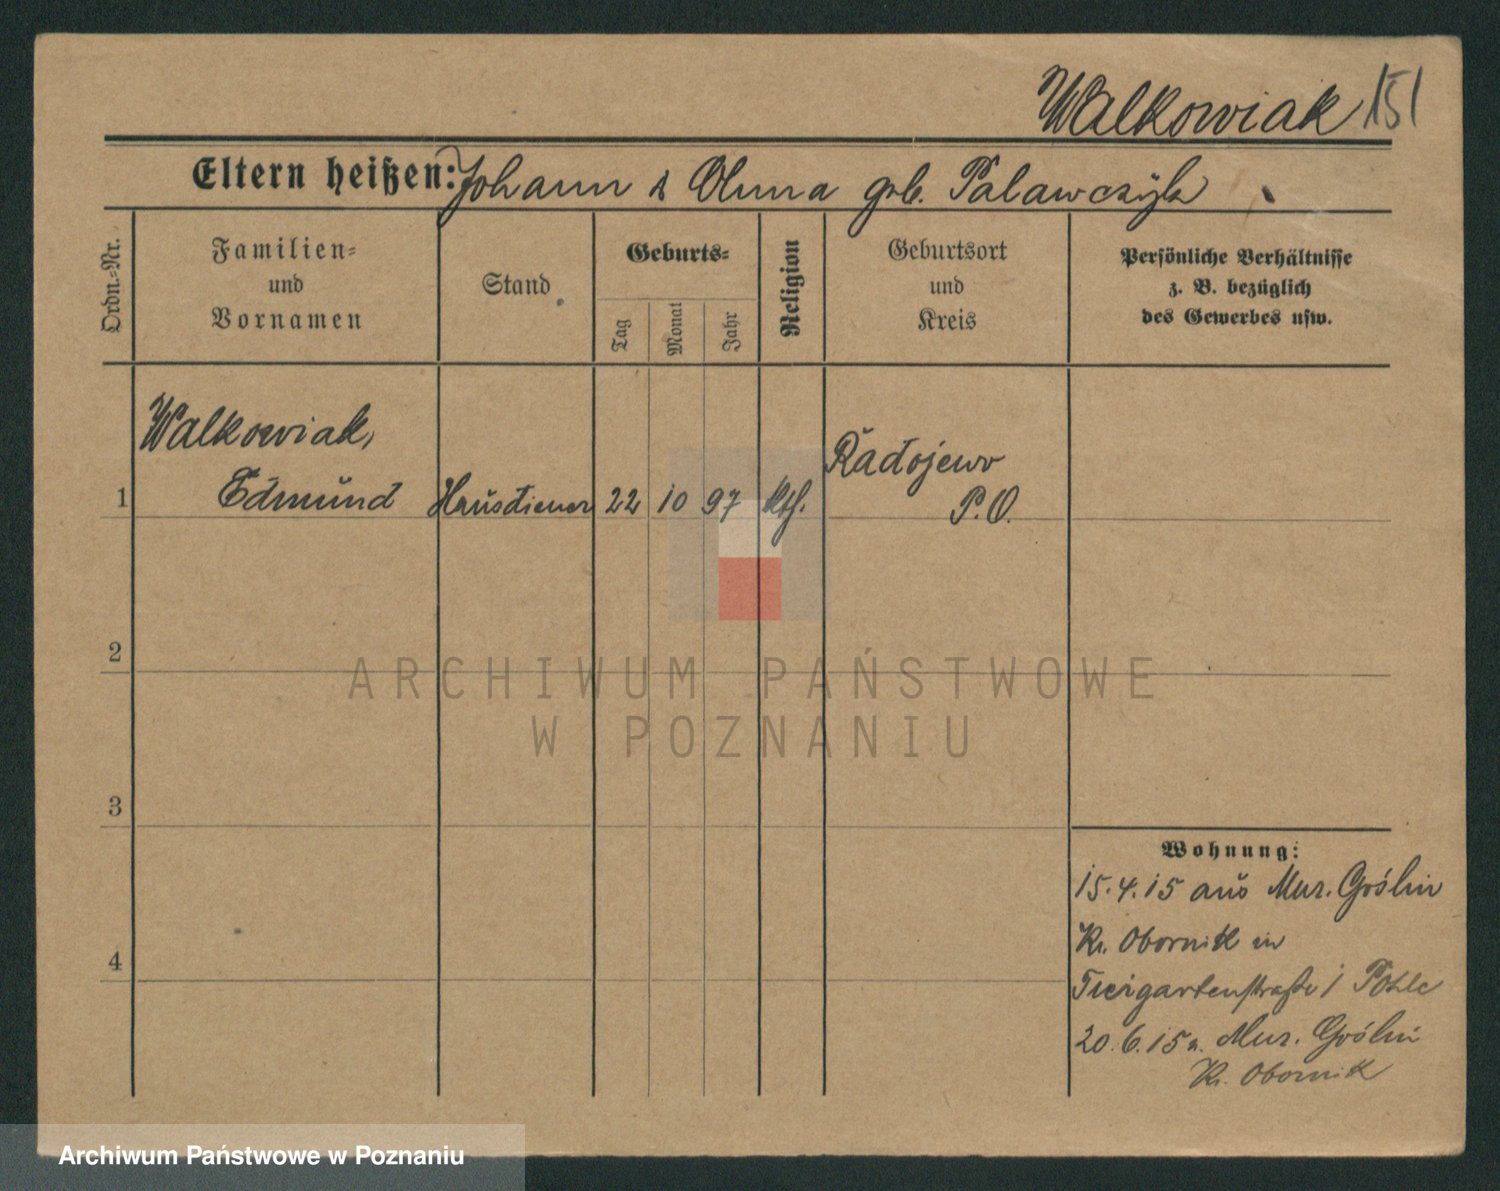 Walkowiak 151
Eltern heißen: Johann & Anna geb. Palawczyk
Ordn.-Nr.
Familien-
und
Vornamen
Stand
Geburts-
Tag
Monat
Jahr
Religion
Geburtsort
und
Kreis
Persönliche Verhältnisse
z. B. bezüglich
des Gewerbes usw.
Walkowiak,
1 Edmund Hausdiener 22 10 97 kth. Radojewo
P.O.
2
ARCHIWUM PAŃSTWOWE
W POZNANIU
3
Wohnung:
15.4.15 aus Mur. Goślin
Kr. Obornik in
Tiergartenstraße 1 Pohle
4
20.6.15 n. Mur. Goślin
Kr. Obornik
Archiwum Państwowe w Poznaniu